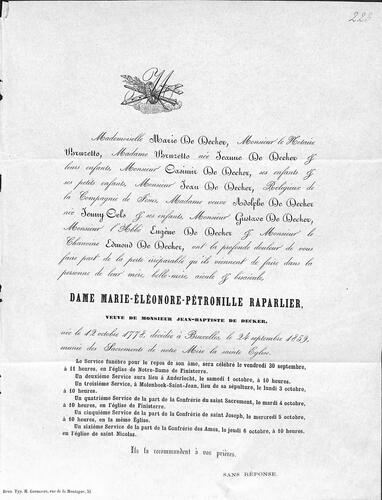 223
Mademoiselle Marie De Decker, Monsieur le Notaire
Bruzetto, Madame Bruzetto née Jeanne De Decker &
leurs enfants, Monsieur Casimir De Decker, ses enfants &
ses petits enfants, Monsieur Jean De Decker, Religieux de
la Compagnie de Jésus, Madame veuve Adolphe De Decker
née Jenny Cels & ses enfants, Monsieur Gustave De Decker,
Monsieur l'Abbé Eugène De Decker & Monsieur le
Chanoine Edmond De Decker, ont la profonde douleur de vous
faire part de la perte irréparable qu'ils viennent de faire dans la
personne de leur mère, belle-mère, aïeule & bisaïeule,
DAME MARIE-ÉLÉONORE-PÉTRONILLE RAPARLIER,
VEUVE DE MONSIEUR JEAN-BAPTISTE DE DECKER,
née le 12 octobre 1778, décédée à Bruxelles, le 24 septembre 1859,
munie des Sacrements de notre Mère la sainte Église.
Le Service funèbre pour le repos de son âme, sera célébré le vendredi 30 septembre,
à 11 heures, en l'église de Notre-Dame de Finisterre.
Un deuxième Service aura lieu à Anderlecht, le samedi 1 octobre, à 10 heures.
Un troisième Service, à Molenbeek-Saint-Jean, lieu de sa sépulture, le lundi 3 octobre,
à 10 heures.
Un quatrième Service de la part de la Confrérie du saint Sacrement, le mardi 4 octobre,
à 10 heures, en l'église de Finisterre.
Un cinquième Service de la part de la Confrérie de saint Joseph, le mercredi 5 octobre,
à 10 heures, en la même église.
Un sixième Service de la part de la Confrérie des Ames, le jeudi 6 octobre, à 10 heures,
en l'église de saint Nicolas.
Ils la recommandent à vos prières.
SANS RÉPONSE.
Brux. Typ. H. Goemaere, rue de la Montagne, 51